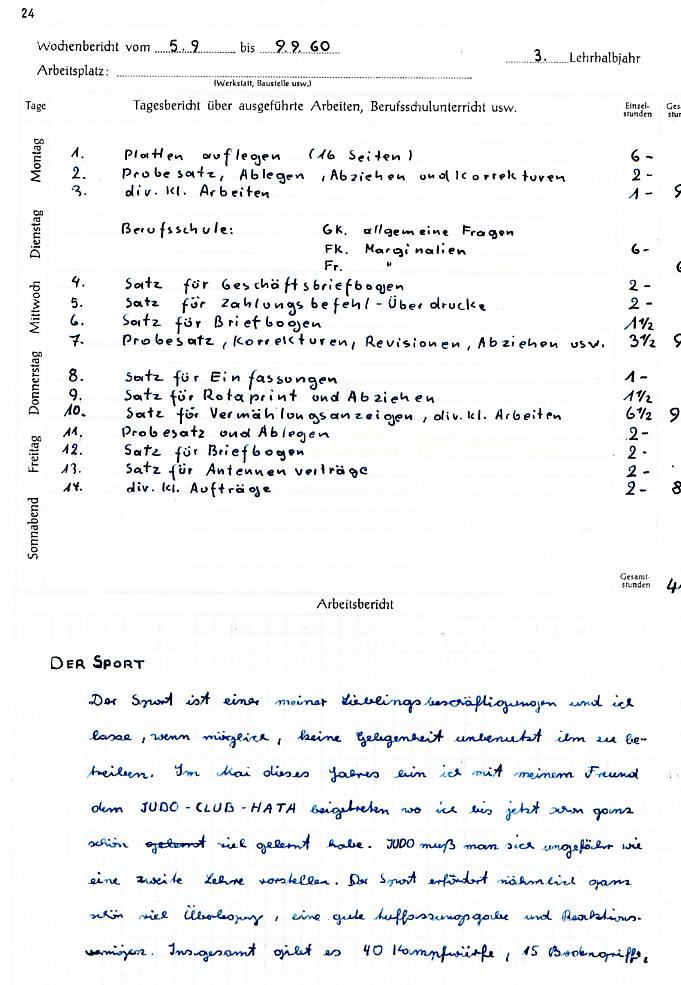 24
Wochenbericht vom 5.9 bis 9.9.60
3. Lehrhalbjahr
Arbeitsplatz:
(Werkstatt, Baustelle usw.)
Tage Tagesbericht über ausgeführte Arbeiten, Berufsschulunterricht usw. Einzel- Ges
stunden stun
Montag
1. Platten auflegen (16 Seiten) 6 -
2. Probesatz, Ablegen, Abziehen und Korrekturen 2 -
3. div. kl. Arbeiten 1 - 9
Dienstag
Berufsschule: GK. allgemeine Fragen
FK. Marginalien 6-
Fr. " 6
Mittwoch
4. Satz für Geschäftsbriefbogen 2 -
5. Satz für Zahlungsbefehl-Überdrucke 2 -
6. Satz für Briefbogen 1 1/2
7. Probesatz, Korrekturen, Revisionen, Abziehen usw. 3 1/2 9
Donnerstag
8. Satz für Einfassungen 1 -
9. Satz für Rotaprint und Abziehen 1 1/2
10. Satz für Vermählungsanzeigen, div. kl. Arbeiten 6 1/2 9
Freitag
11. Probesatz und Ablegen 2 -
12. Satz für Briefbogen 2 -
13. Satz für Antennenverträge 2 -
14. div. kl. Aufträge 2 - 8
Sonnabend
Gesamt-
stunden 4
Arbeitsbericht
DER SPORT
Der Sport ist einer meiner Lieblingsbeschäftigungen und ich
lasse, wenn möglich, keine Gelegenheit unbenutzt ihm zu be-
treiben. Im Mai dieses Jahres bin ich mit meinem Freund
dem JUDO-CLUB-HATA beigetreten wo ich bis jetzt schon ganz
schön gelernt viel gelernt habe. JUDO muß man sich ungefähr wie
eine zweite Lehre vorstellen. Der Sport erfordert nähmlich ganz
schön viel Überlegung, eine gute Auffassungsgabe und Reaktions-
vermögen. Insgesamt gibt es 40 Kampfwürfe, 15 Bodengriffe,